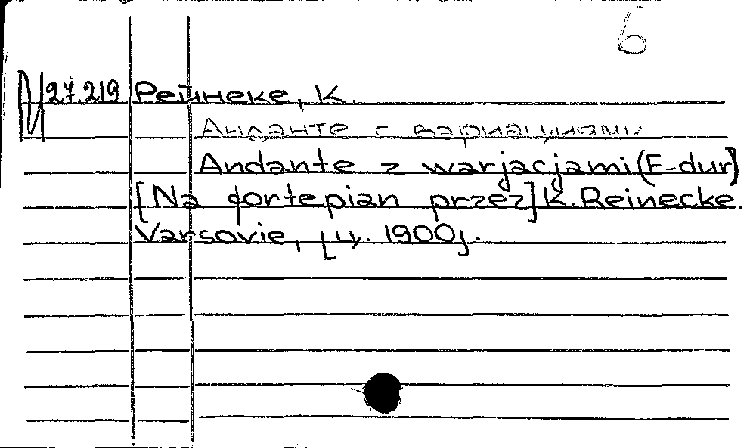 6
27.219 Рейнеке, К.
Анданте с вариациями
Andante z warjacjami (F-dur)
[Na fortepian przez] K. Reinecke.
Varsovie, [ц. 1900].